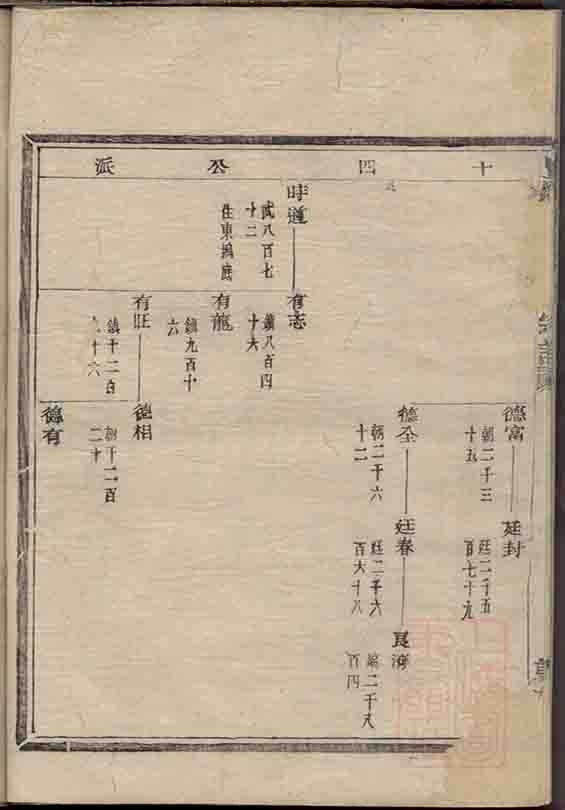 十四公派
德富
朝二千三
十五
廷封
廷二千五
百七十九
德全
朝二千六
十二
廷春
廷二千六
百六十八
良海
二千八
百四
時道
武八百七
十二
住東塢底
有志
鎮八百四
十六
有龍
鎮九百十
六
有旺
鎮千二百
十六
德相
朝千二百
二十
德有